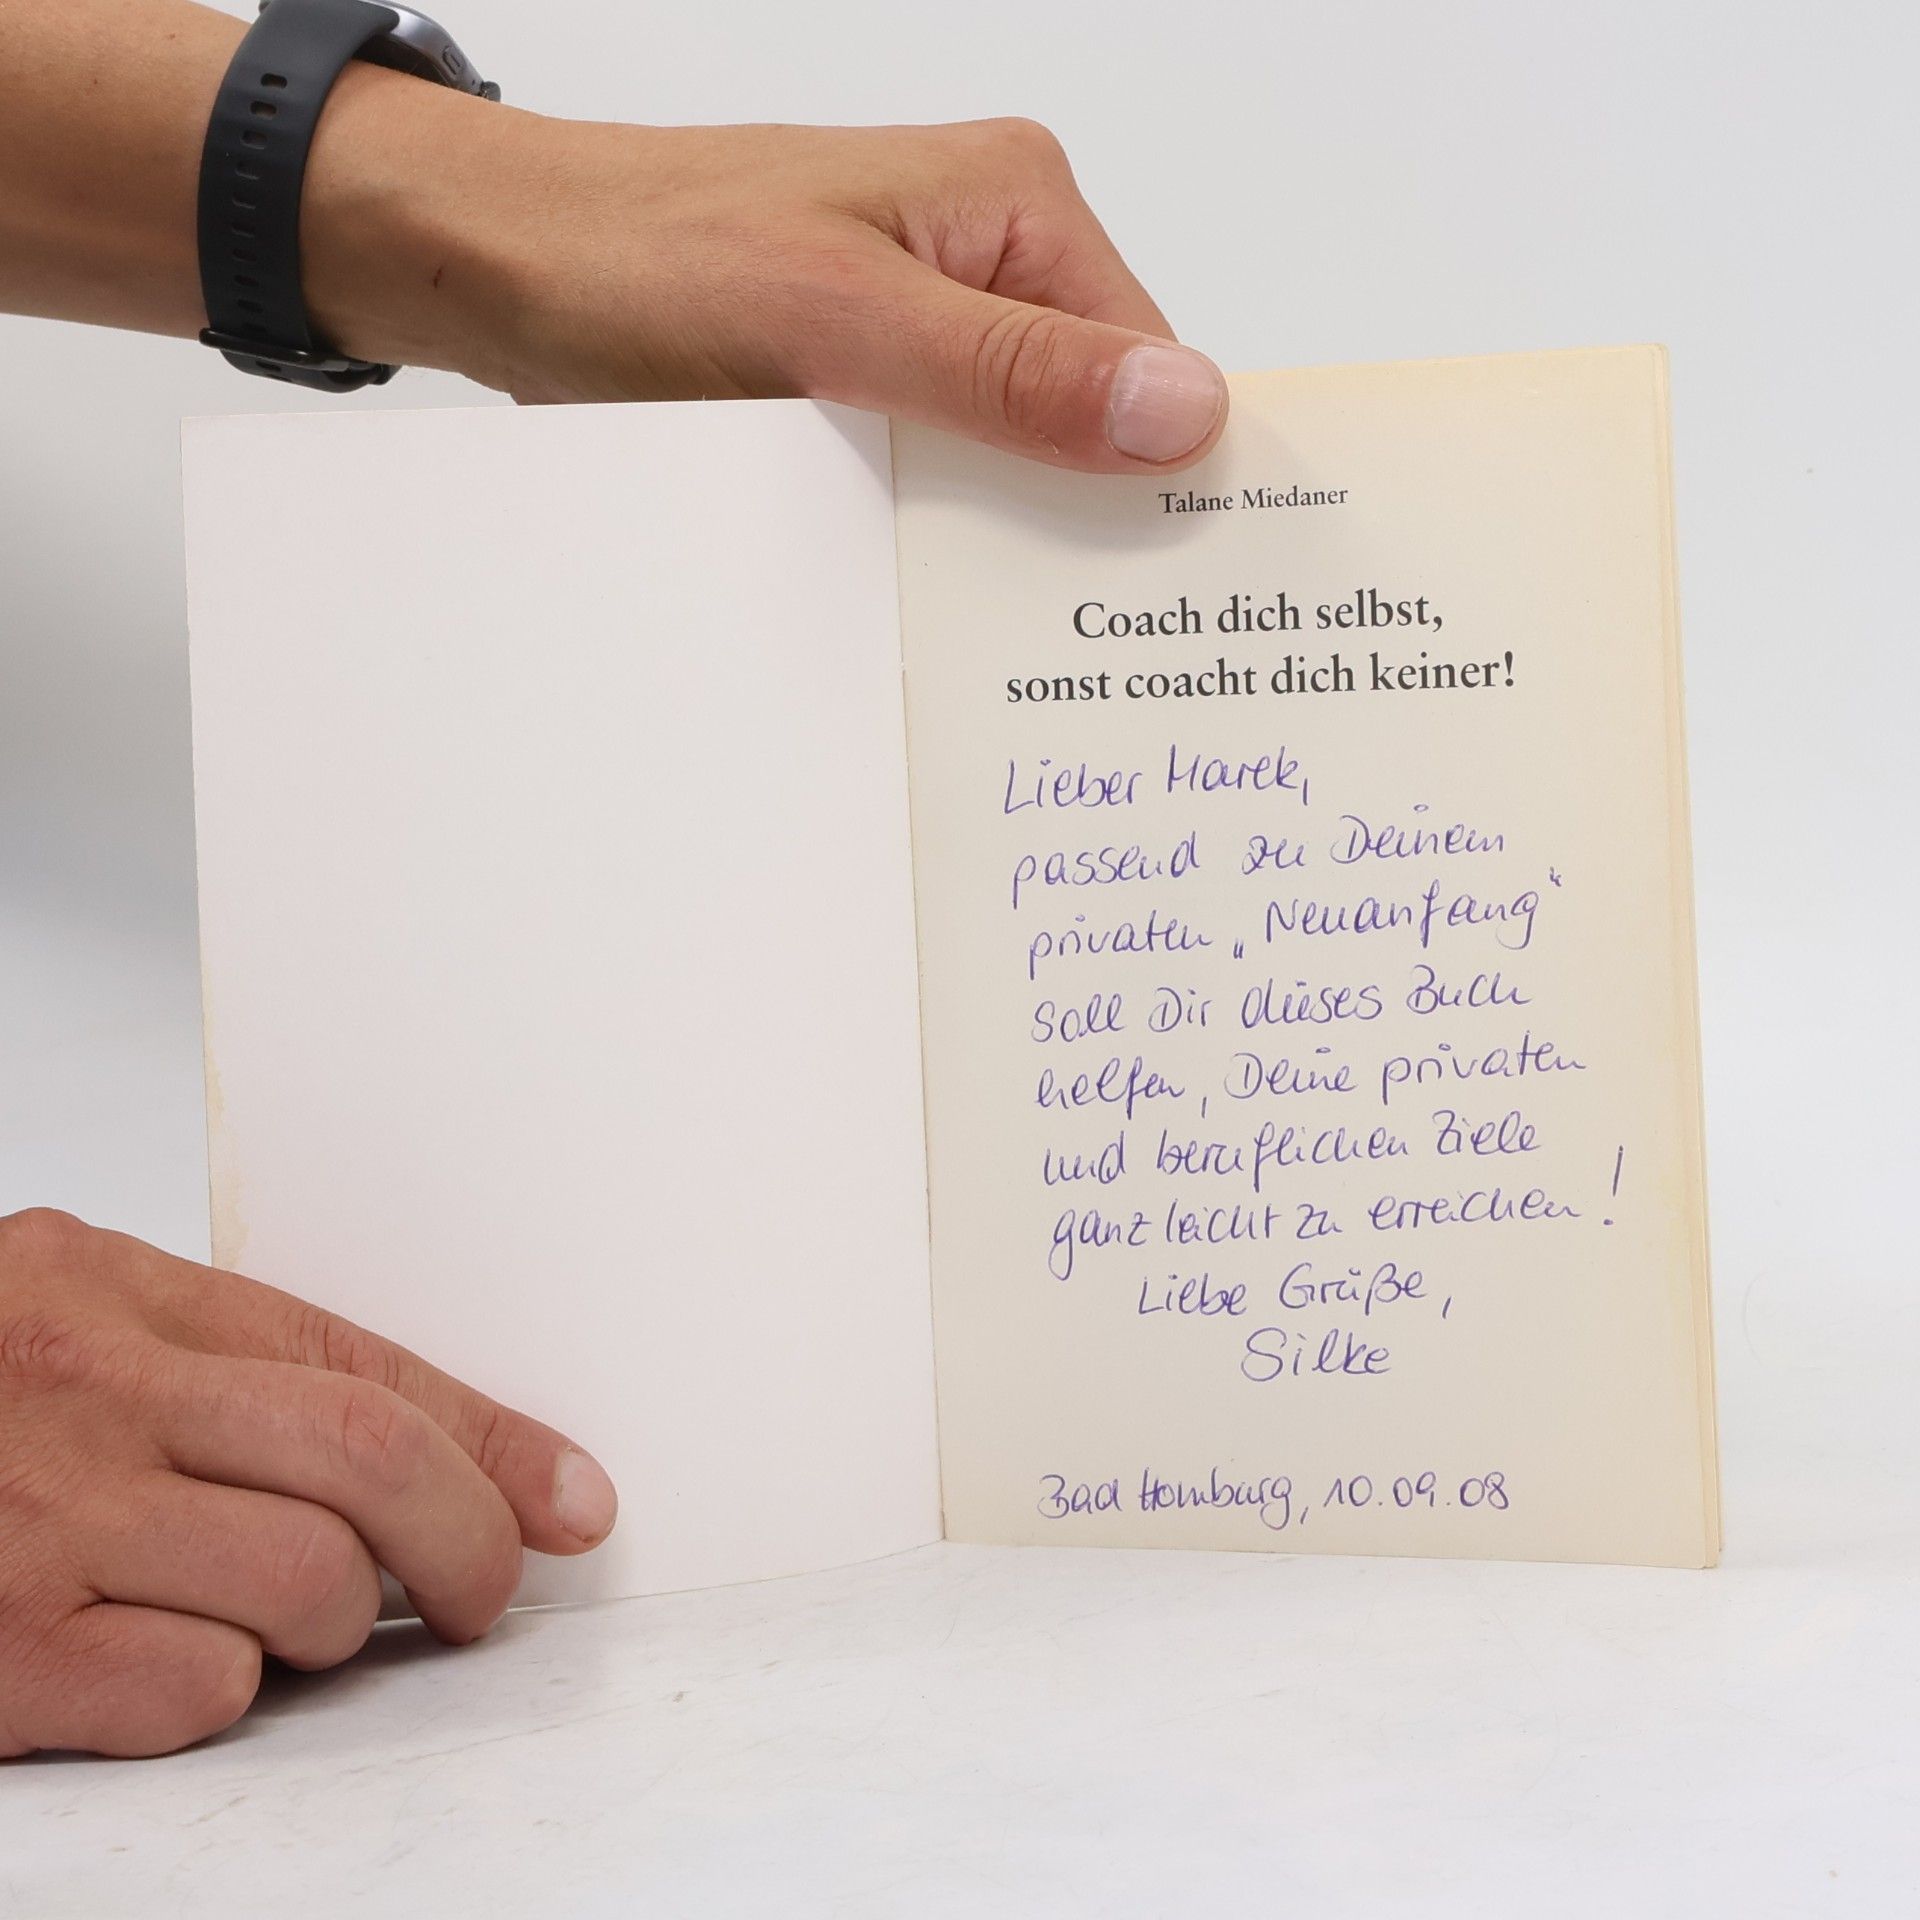 Talane Miedaner
Coach dich selbst,
sonst coacht dich keiner!
Lieber Marek,
passend zu Deinem
privaten „Neuanfang“
soll Dir dieses Buch
helfen, Deine privaten
und beruflichen Ziele
ganz leicht zu erreichen!
Liebe Grüße,
Silke
Bad Homburg, 10.09.08